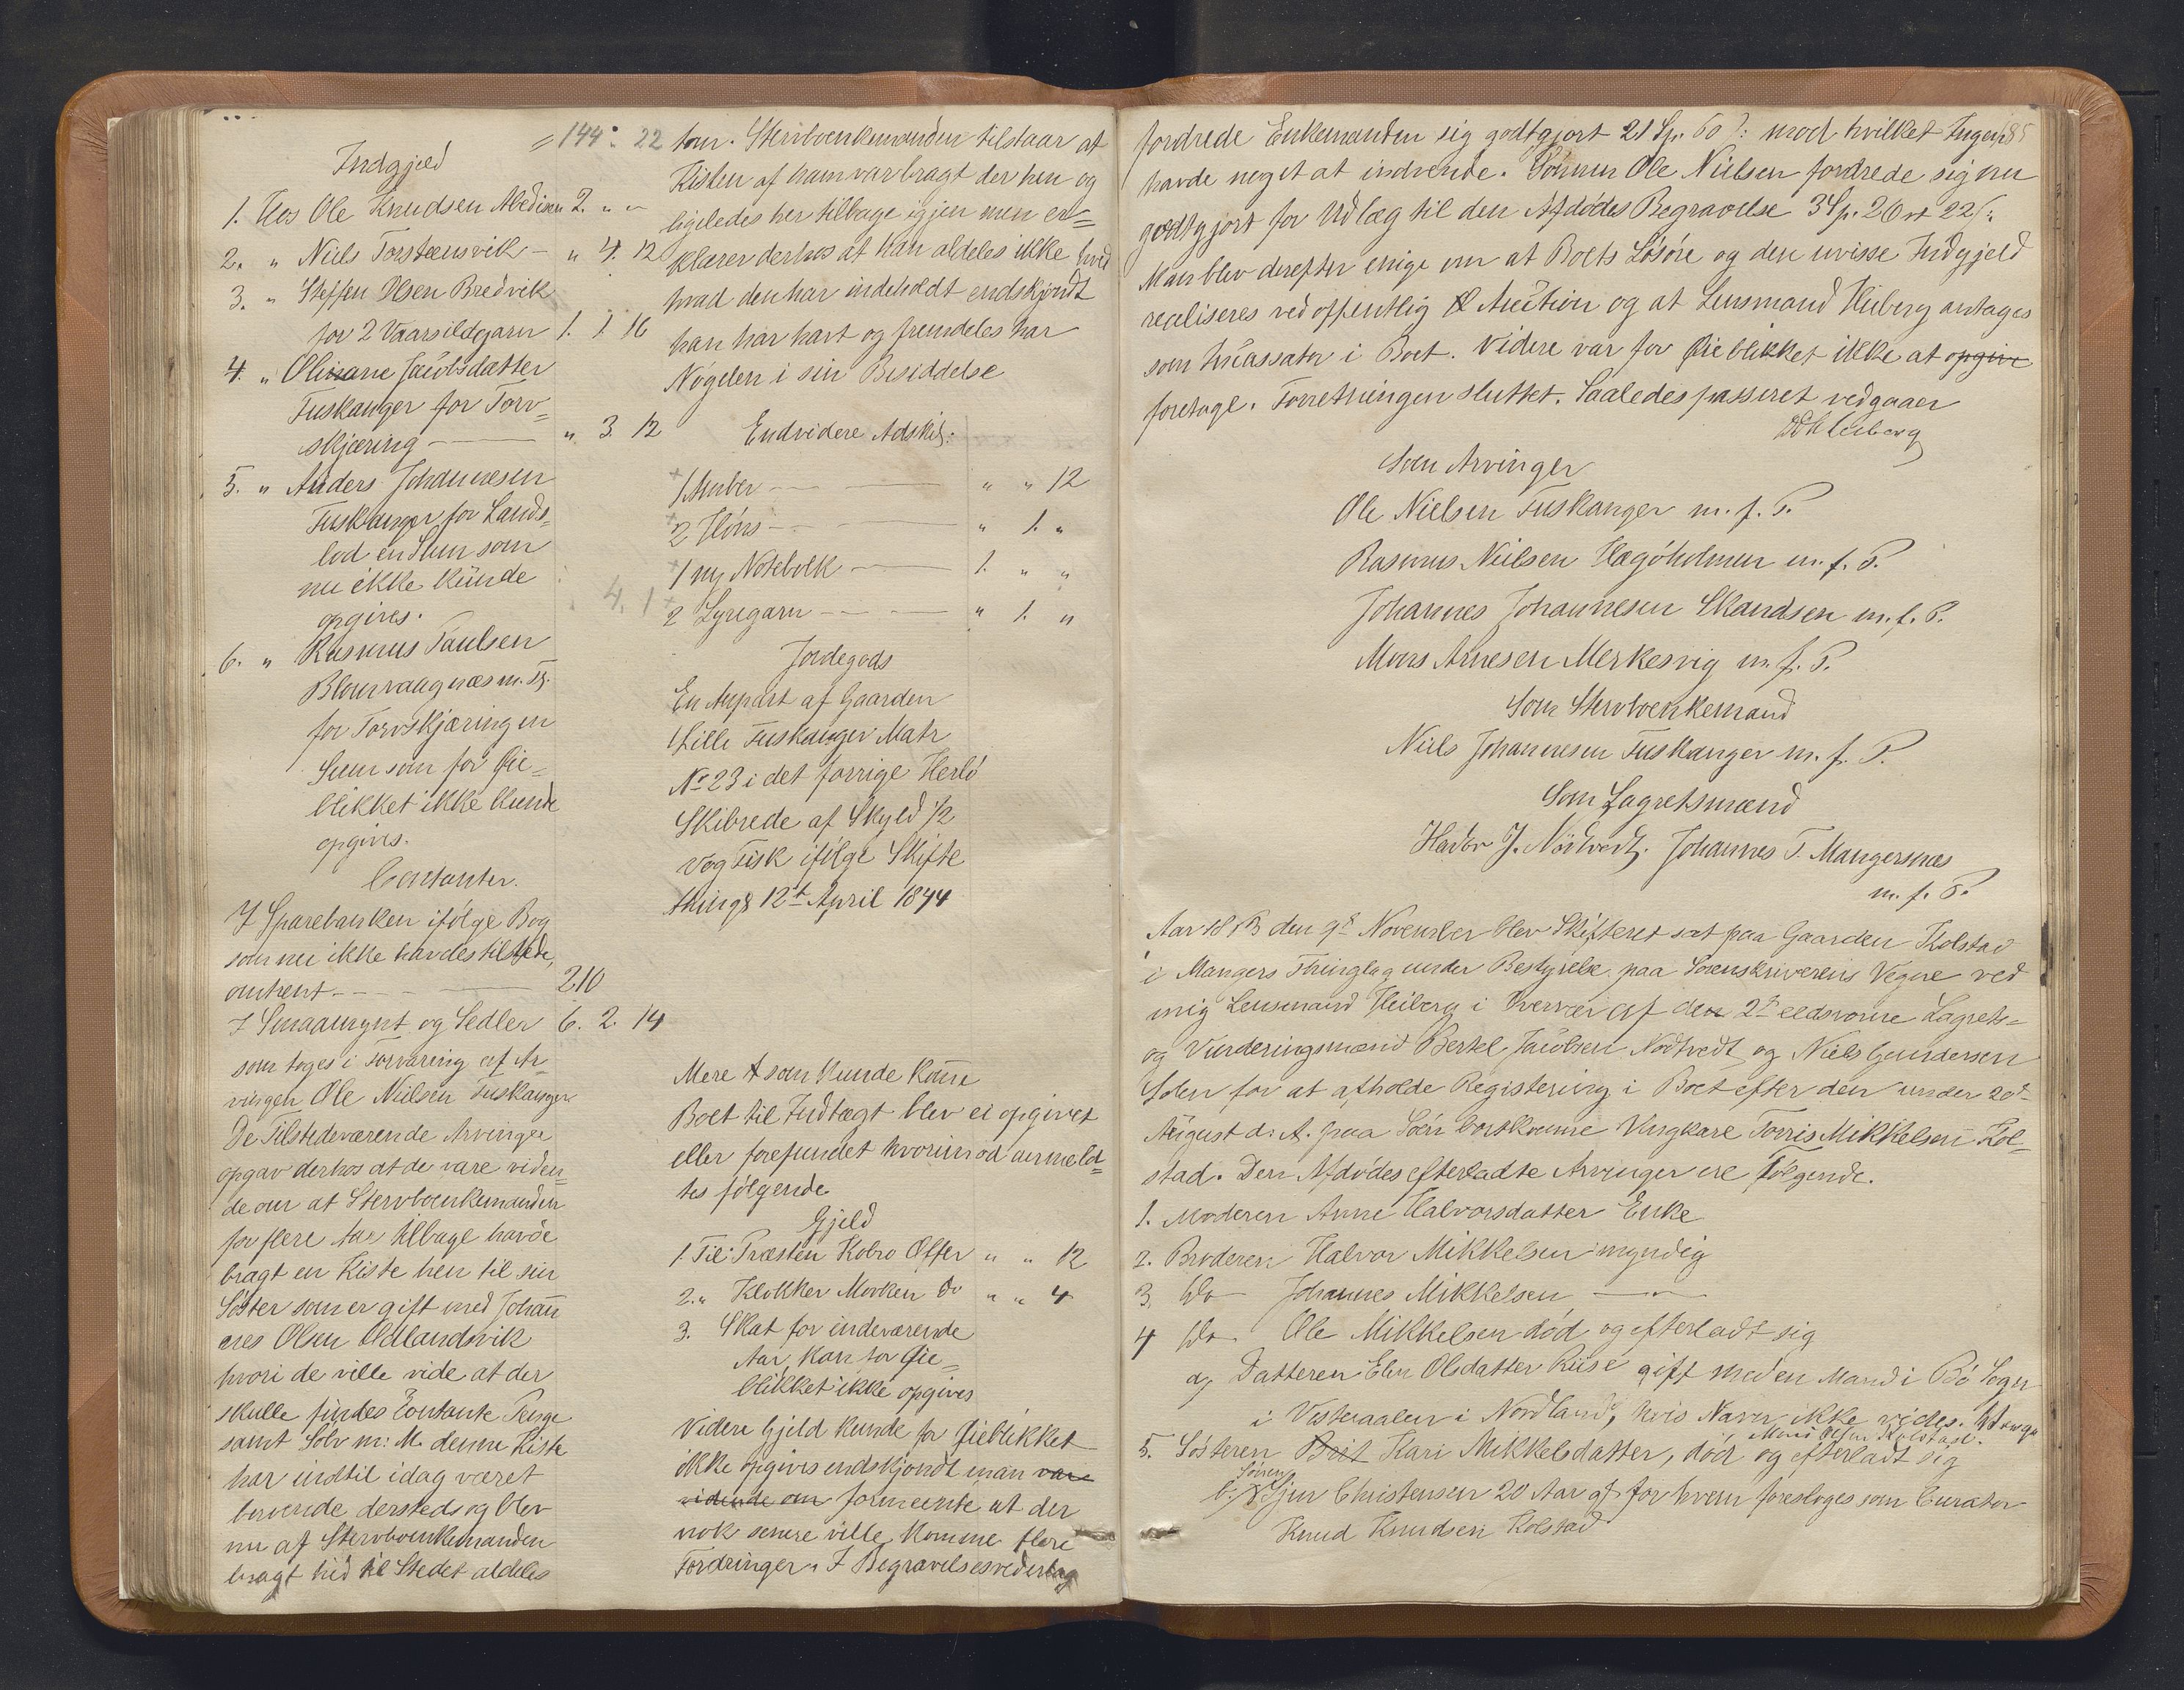 = 144: 22
Indgjæld
1. Hos Ole Knudsen Abedissen 2. " "
2. " Niels Torsteensvik - " 4. 12
3. " Steffen Olsen Bredvik
for 2 Vaarsildgarn 1. 1. 16
4. " Olinane Jacobsdatter
Fuskanger for Torv=
skjæring - " 3. 12
5. " Anders Johannesen
Fuskanger for Lands=
lod en Sum som
nu ikke kunde
opgives.
6. " Rasmus Paulsen
Blomvaagnæs m. Fl.
for Torvskjæring en
Sum som for Øie=
blikket ikke kunde
opgives.
Contanter.
I Sparebanken ifølge Bog
som nu ikke havdes tilstede,
omtrent - 210
I Smaamynt og Sedler 6. 2. 14
som toges i Forvaring af Ar-
vingen Ole Nielsen Fuskanger
De Tilstedeværende Arvinger
opgav derhos at de vare viden=
de om at Stervboenkemanden
for flere Aar tilbage havde
bragt en Kiste hen til sin
Søster som er gift med Johan
nes Olsen Oldlandsvik
hvori de ville vide at der
skulle findes Contante Penge
samt Sølv m: M. denne Kiste
har indtil idag været
beroende dersteds og blev
nu af Stervboenkemanden
bragt hid til Stedet aldeles
tom. Stervboenkemanden tilstaar at
Kisten af ham var bragt der hen og
ligeledes her tilbage igjen men er=
klærer derhos at han aldeles ikke hvid
hvad den har indeholdt endskjøndt
han har havt og fremdeles har
Nøgelen i sin Besiddelse
Endvidere Adskil:
1 Amber - " " 12
2 Høns - " 1. "
1 ny Notebolk - 1. " "
4. 1
2 Lyregarn - " 1. "
Jordegods
En Anpart af Gaarden
Lille Fuskanger Matr
No 23 i det forrige Herlø
Skibrede af Skyld 1/2
Vog Fisk ifølge Skifte
things 12te April 1844
Mere som kunde komme
Boet til Indtægt blev ei opgivet
eller forefundet hvorimod anmeld=
tes følgende
Gjeld
1. Til Præsten Kobro Offer " " 12
2. " Klokker Morken Do " " 4
3. Skat for indeværende
Aar, kan for Øie=
blikket ikke opgives
Videre Gjeld kunde for Øieblikket
ikke opgives endskjøndt man vare
vidende om formeente at der
nok senere ville komme flere
Fordringer. I Begravelsesvederlag
fordrede Enkemanden sig godtgjort 21 Sp. 60 ?: mod hvilket Ingen
havde noget at indvende. Sønnen Ole Nielsen fordrede sig nu
godtgjort for Udlæg til den Afdødes Begravelse 3 Sp. 2 Ort 22 /:
Man blev derefter enige om at Boets Løsøre og den uvisse Indgjeld
realiseres ved offentlig Auction og at Lensmand Heiberg antages
som Incassator i Boet. Videre var for Øieblikket ikke at opgive
foretage. Forretningen sluttet. Saaledes passeret vedgaaer
Heiberg
Som Arvinger
Ole Nielsen Fuskanger m. f. P.
Rasmus Nielsen Hægøholmen m. f. P.
Johannes Johannesen Skandsen m. f. P.
Mons Arnesen Merkesvig m. f. P.
Som Stervboenkemand
Niels Johannesen Fuskanger m. f. P.
Som Lagretsmænd
J. Nödtvedt. Johannes T. Mangersnæs
m. f. P.
Aar den 9de November blev Skifteret sat paa Gaarden Kolstad
i Mangers Thinglag under Bestyrelse paa Sorenskriverens Vegne ved
mig Lensmand Heiberg i Overvær af den 2de eedsvorne Lagrets=
og Vurderingsmænd Bertel Jacobsen Nødtvedt og Niels Gundersen
Solen for at afholde Registering i Boet efter den under 20de
August d. A. paa Søen bortkomne Ungkare Torris Mikkelsen Kol=
stad. Den Afdødes efterladte Arvinger ere følgende.
1. Moderen Anne Halvorsdatter Enke
2. Broderen Halvor Mikkelsen myndig
3. Do Johannes Mikkelsen - " -
4 Do. Ole Mikkelsen død og efterladt sig
a, Datteren Elen Olsdatter Riise gift med en Mand i Bø Sogn
i Vesteraalen i Nordland, hvis Navn ikke vides.
5. Søsteren Brit Kari Mikkelsdatter, død og efterladt sig
Sønnen
Christensen 20 Aar gl for hvem foresloges som Curator
Knud Knudsen Kolstad